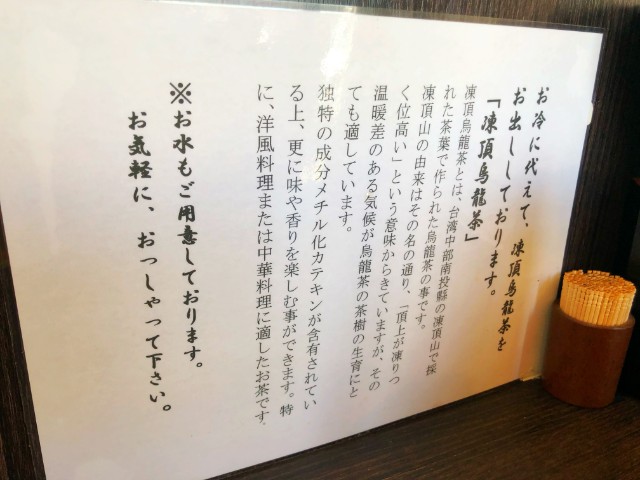 お冷に代えて、凍頂烏龍茶を
お出ししております。
「凍頂烏龍茶」
凍頂烏龍茶とは、台湾中部南投縣の凍頂山で採
れた茶葉で作られた烏龍茶の事です。
凍頂山の由来はその名の通り、「頂上が凍りつ
く位高い」という意味からきていますが、その
温暖差のある気候が烏龍茶の茶樹の生育にと
ても適しています。
独特の成分メチル化カテキンが含有されてい
る上、更に味や香りを楽しむ事ができます。特
に、洋風料理または中華料理に適したお茶です。
※お水もご用意しております。
お気軽に、おっしゃって下さい。